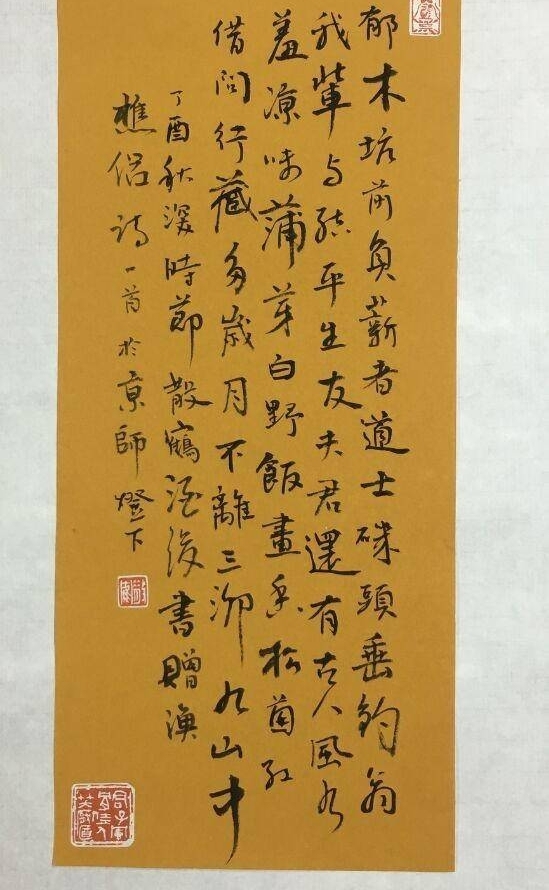 郁木坑前負薪者道士磯頭垂釣翁
我輩与結平生友夫君還有古人風水
羞凉味蒲芽白野飯畫香松菌紅
借問行藏多歲月不離三泖九山中
丁酉秋深時節散鶴酒後書贈漁
樵侶詩一首於京師燈下